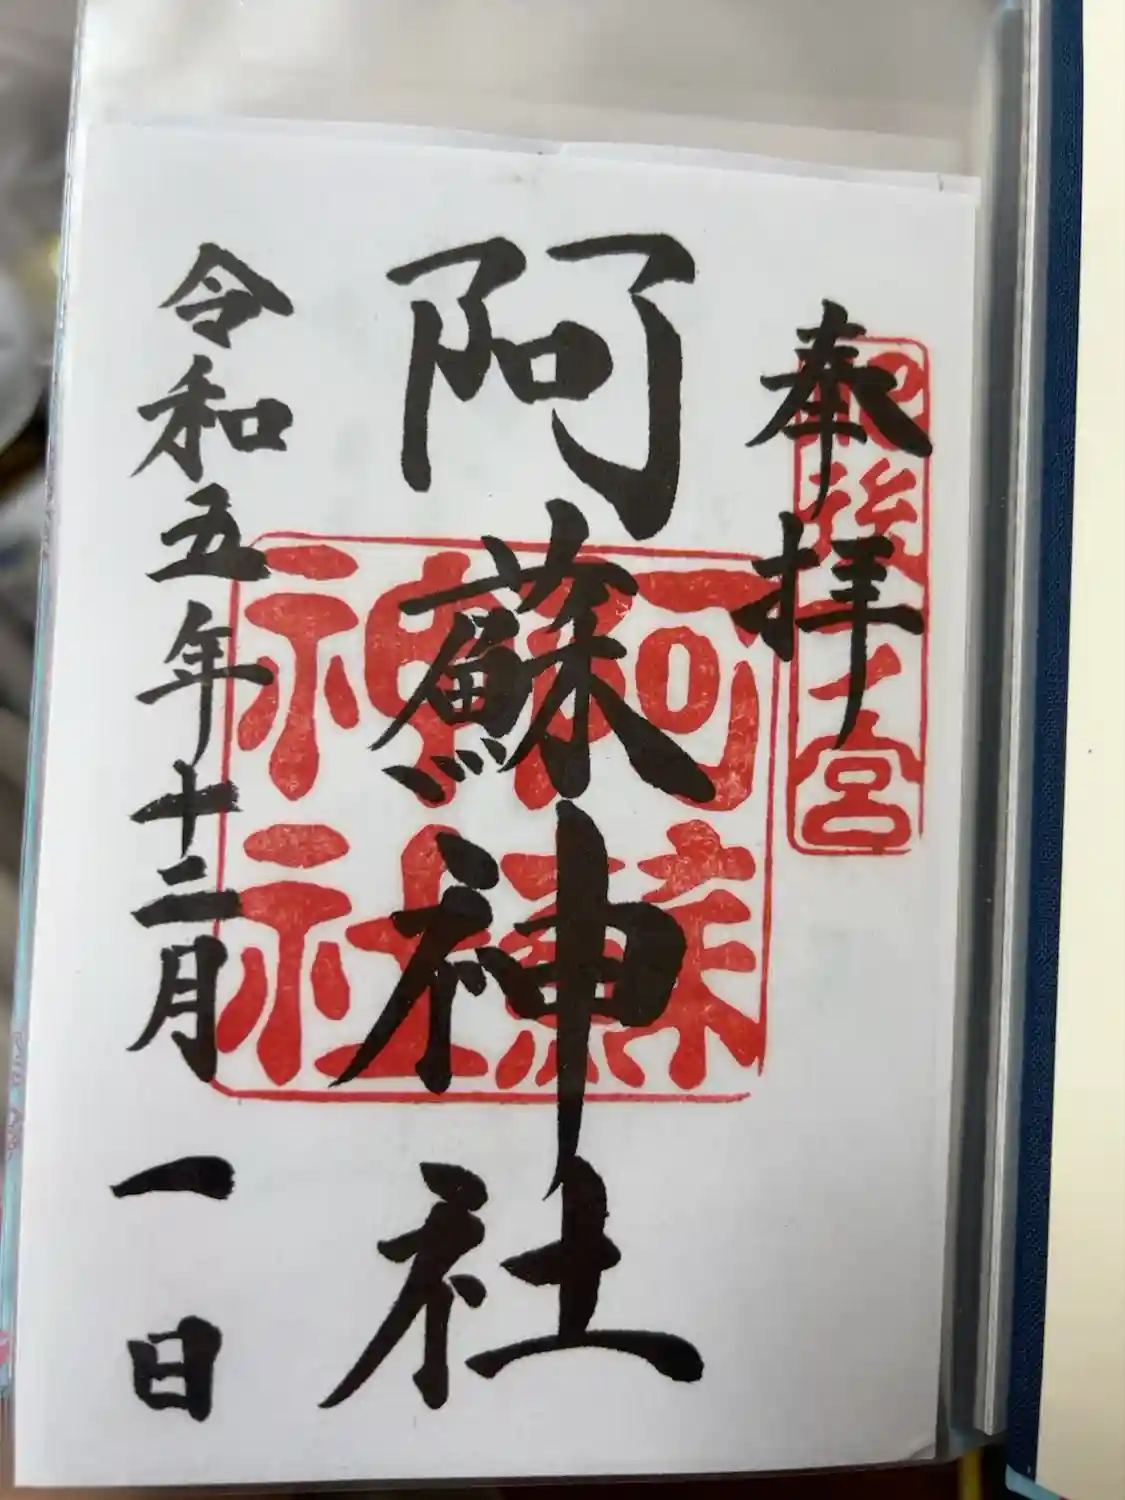 奉拝
肥後一ノ宮
阿蘇神社
阿蘇神社
令和五年十二月一日